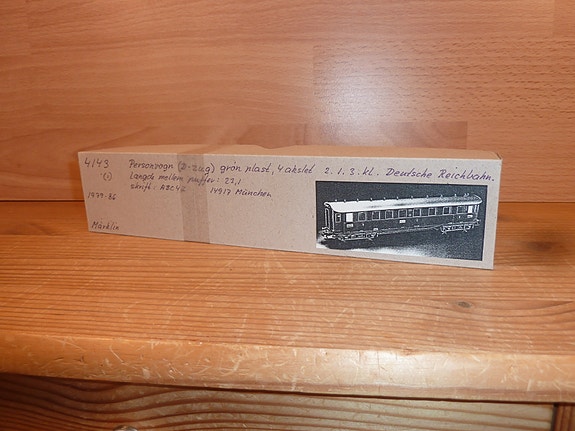 4143 Personvogn (D-zug) grøn plast, 4 akslet 2. 1. 3. kl. Deutsche Reichbahn.
(1) Længde mellem puffer: 27,1
1979-86 Skrift: ABC4ü 14917 München
Märklin